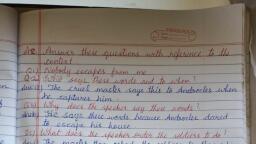 Answer these questions with reference to the
context
Q1) Nobody escapes from me
Q2) Who says these words and to whom?
Ans) The cruel master says this to Androcles when
he captures him
Q3) Why does the speaker say these words?
Ans) He says these words because Androcles dared
to escape his house
Q4) What does the speaker order the soldiers to do?
Ans) The master